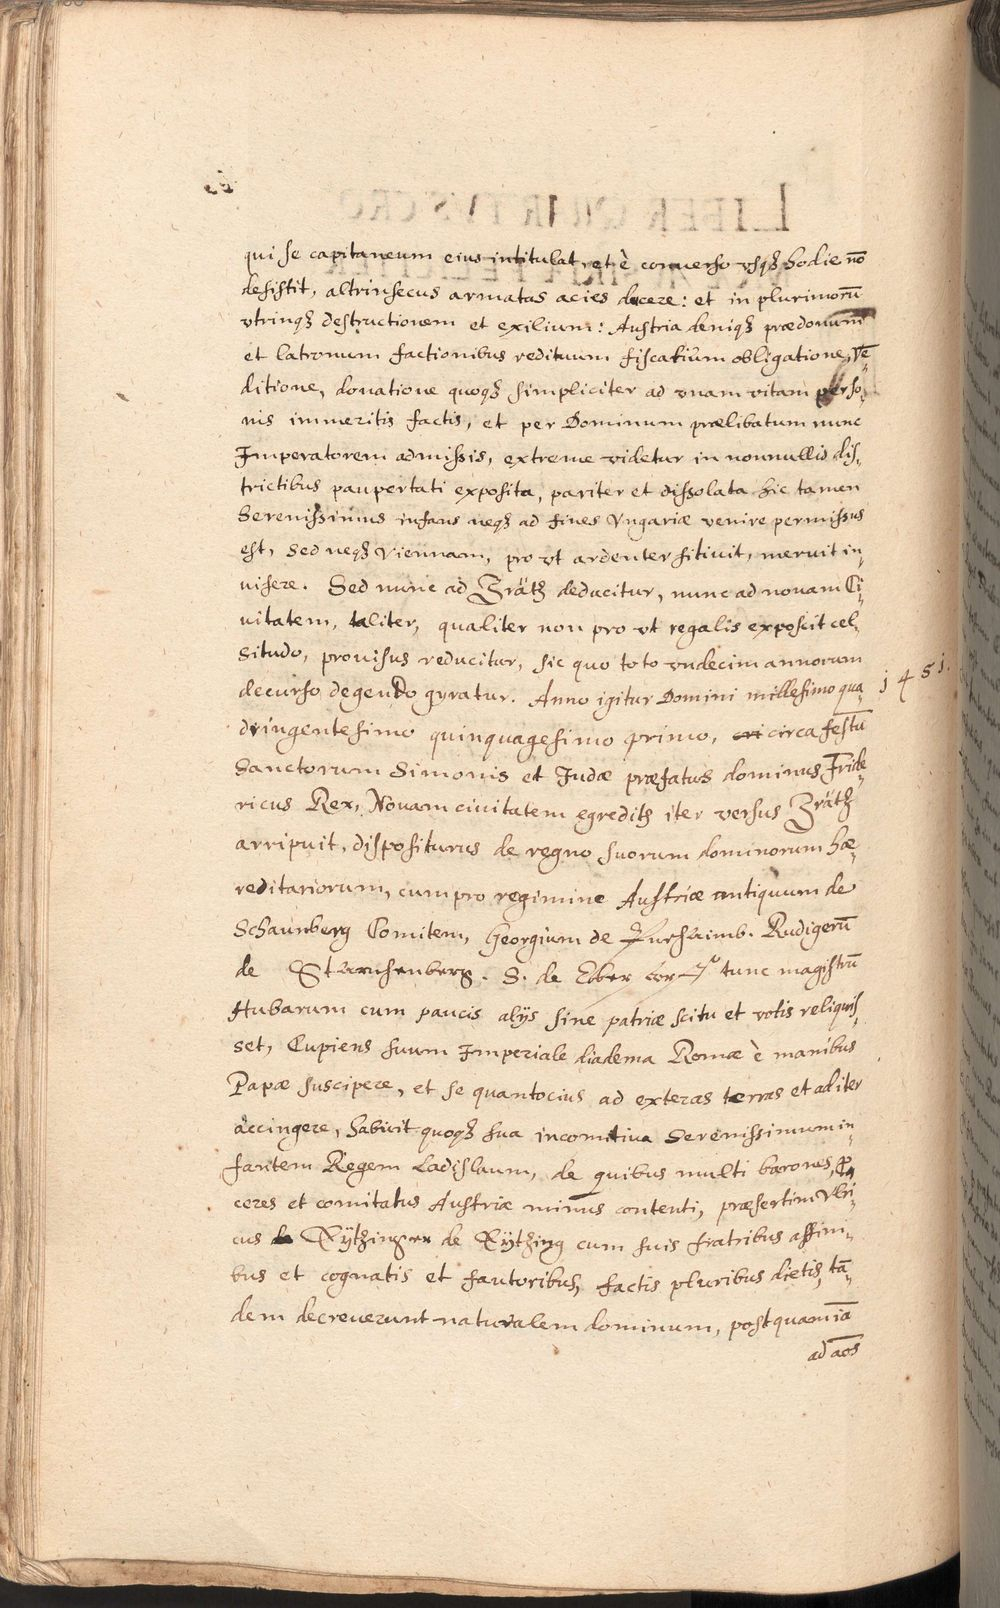 qui se capitaneum eius intitulat, et è conuerso vsqꝫ hodie nō
desistit, altrinsecus armatas acies ducere: et in plurimorū
vtrinqꝫ destructionem et exilium: Austria deniqꝫ prædonum
et latronum factionibus redituum fiscalium obligatione, vē-
ditione, donatione quoqꝫ simpliciter ad vnam vitam perso-
nis immeritis factis, et per Dominum prælibatum nunc
Imperatorem admissis, extreme videtur in nonnullis dis-
trictibus paupertati exposita, pariter et dissolata hic tamen
Serenissimus infans neqꝫ ad fines Vngariæ venire permissus
est, sed neqꝫ Viennam, pro vt ardenter sitiuit, meruit in-
uisere. Sed nunc ad Grätz deducitur, nunc ad nouam Ci-
uitatem, taliter, qualiter non pro vt regalis exposcit cel-
situdo, prouisus reducitur, sic quo toto vndecim annorum
decurso degendo gyratur. Anno igitur Domini millesimo qua-
1451.
dringentesimo quinquagesimo primo, circa festū
Sanctorum Simonis et Judæ præfatus dominus Fride-
ricus Rex, Nouam ciuitatem egreditꝫ iter versus Grätz
arripuit, dispositurus de regno suorum dominorum hæ-
reditariorum, cum pro regimine Austriæ antiquum de
Schaunberg Comitem, Georgium de Rudigerū
de Starhenberg. S. de Eber tunc magistrū
Hubarum cum paucis alijs sine patriæ scitu et votis reliquis-
set, Cupiens suum Imperiale diadema Romæ è manibus
Papæ suscipere, et se quantocius ad exteras terras et ad iter
accingere, habuit quoqꝫ sua incomitiua Serenissimum in-
fantem Regem Ladislaum, de quibus multi barones, Pro-
ceres et comitatus Austriæ minus contenti, præsertim Vlri-
cus Eytzinger de Eytzing cum suis fratribus affini-
bus et cognatis et fautoribus, factis pluribus dietis, tā-
dem decreuerunt naturalem dominum, postquam iā
ad aōs